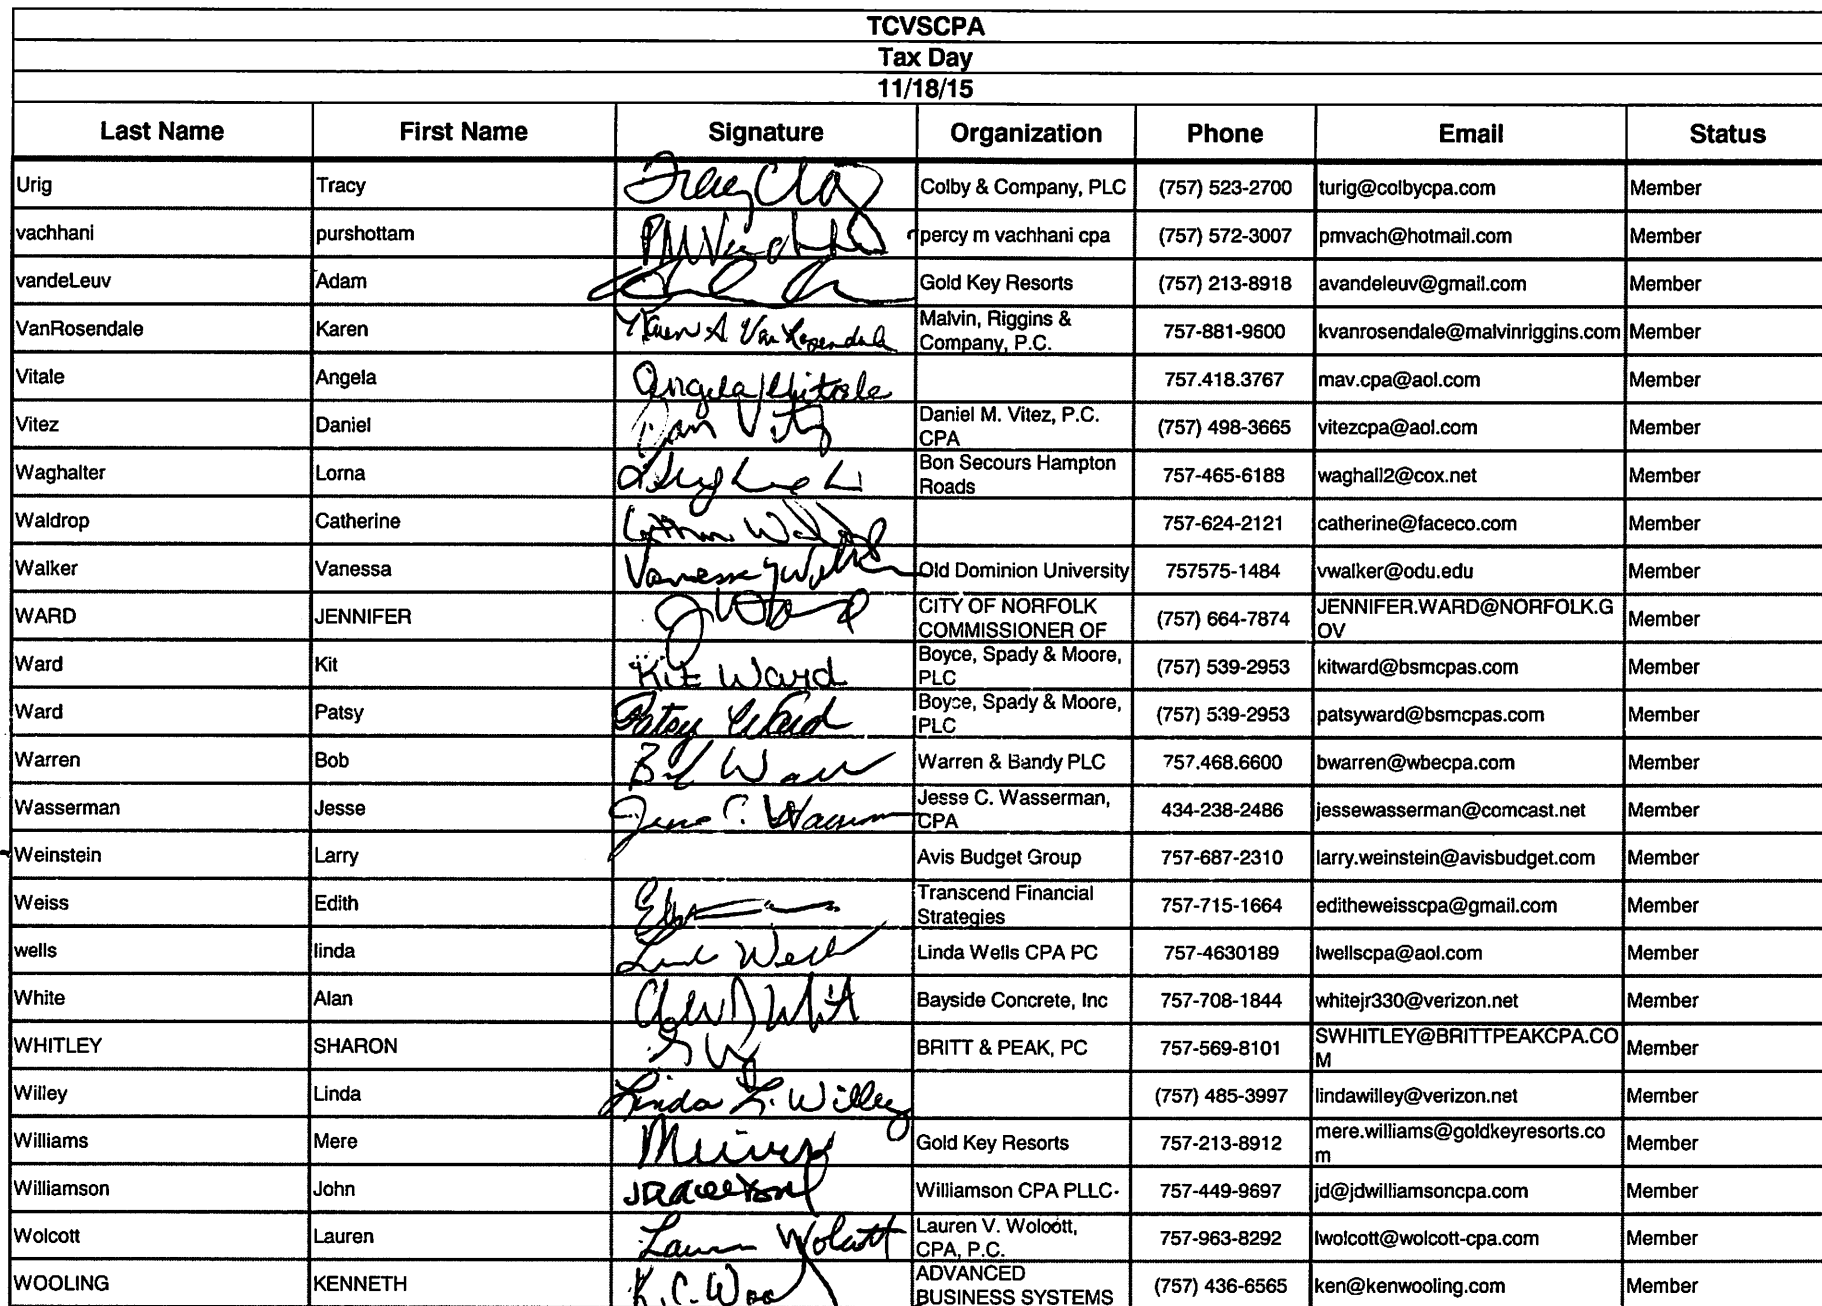 TCVSCPA
Tax Day
11/18/15
Last Name First Name Signature Organization Phone Email Status
Urig Tracy Colby & Company, PLC (757) 523-2700 turig@colbycpa.com Member
vachhani purshottam percy m vachhani cpa (757) 572-3007 pmvach@hotmail.com Member
vandeLeuv Adam Gold Key Resorts (757) 213-8918 avandeleuv@gmail.com Member
VanRosendale Karen Karen A Van Rosendale Malvin, Riggins &
Company, P.C. 757-881-9600 kvanrosendale@malvinriggins.com Member
Vitale Angela Angela Vitale 757.418.3767 mav.cpa@aol.com Member
Vitez Daniel Dan Vitez Daniel M. Vitez, P.C.
CPA (757) 498-3665 vitezcpa@aol.com Member
Waghalter Lorna Bon Secours Hampton
Roads 757-465-6188 waghall2@cox.net Member
Waldrop Catherine 757-624-2121 catherine@faceco.com Member
Walker Vanessa Vanessa Walker Old Dominion University 757575-1484 vwalker@odu.edu Member
WARD JENNIFER CITY OF NORFOLK
COMMISSIONER OF (757) 664-7874 JENNIFER.WARD@NORFOLK.G
OV Member
Ward Kit Kit Ward Boyce, Spady & Moore,
PLC (757) 539-2953 kitward@bsmcpas.com Member
Ward Patsy Patsy Ward Boyce, Spady & Moore,
PLC (757) 539-2953 patsyward@bsmcpas.com Member
Warren Bob Bob Warren Warren & Bandy PLC 757.468.6600 bwarren@wbecpa.com Member
Wasserman Jesse Jesse C. Wasserman Jesse C. Wasserman,
CPA 434-238-2486 jessewasserman@comcast.net Member
Weinstein Larry Avis Budget Group 757-687-2310 larry.weinstein@avisbudget.com Member
Weiss Edith Transcend Financial
Strategies 757-715-1664 editheweisscpa@gmail.com Member
wells linda Linda Wells Linda Wells CPA PC 757-4630189 lwellscpa@aol.com Member
White Alan Bayside Concrete, Inc 757-708-1844 whitejr330@verizon.net Member
WHITLEY SHARON BRITT & PEAK, PC 757-569-8101 SWHITLEY@BRITTPEAKCPA.CO
M Member
Willey Linda Linda L. Willey (757) 485-3997 lindawilley@verizon.net Member
Williams Mere Gold Key Resorts 757-213-8912 mere.williams@goldkeyresorts.co
m Member
Williamson John Williamson CPA PLLC- 757-449-9697 jd@jdwilliamsoncpa.com Member
Wolcott Lauren Lauren Wolcott Lauren V. Wolcott,
CPA, P.C. 757-963-8292 lwolcott@wolcott-cpa.com Member
WOOLING KENNETH K.C. Woo ADVANCED
BUSINESS SYSTEMS (757) 436-6565 ken@kenwooling.com Member